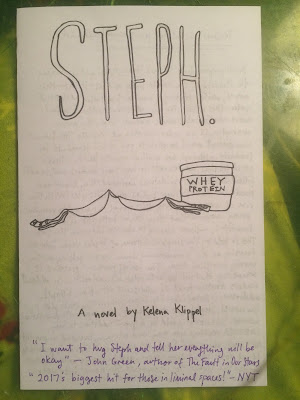 STEPH.
WHEY
PROTEIN
A novel by Kelena Klippel
"I want to hug Steph and tell her everything will be
okay" — John Green, author of The Fault in Our Stars
"2017's biggest hit for those in liminal spaces!" — NYT